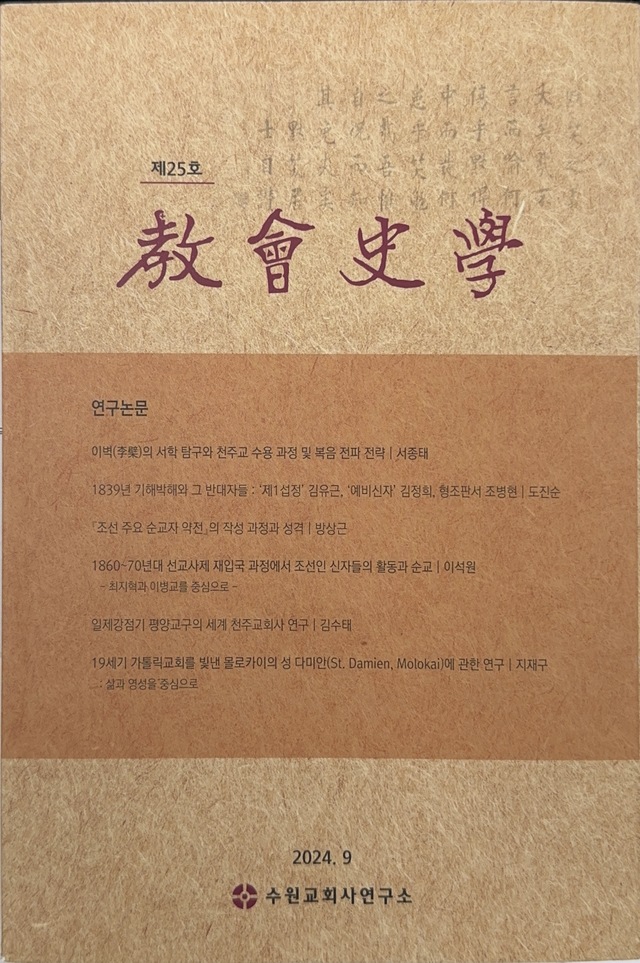 제25호
教會史學
연구논문
이벽(李檗)의 서학 탐구와 천주교 수용 과정 및 복음 전파 전략 | 서종태
1839년 기해박해와 그 반대자들 : ‘제1섭정’ 김유근, ‘예비신자’ 김정희, 형조판서 조병현 | 도진순
『조선 주요 순교자 약전』의 작성 과정과 성격 | 방상근
1860~70년대 선교사제 재입국 과정에서 조선인 신자들의 활동과 순교 | 이석원
- 최지혁과 이병교를 중심으로 -
일제강점기 평양교구의 세계 천주교회사 연구 | 김수태
19세기 가톨릭교회를 빛낸 몰로카이의 성 다미안(St. Damien, Molokai)에 관한 연구 | 지재구
: 삶과 영성을 중심으로
2024. 9
수원교회사연구소